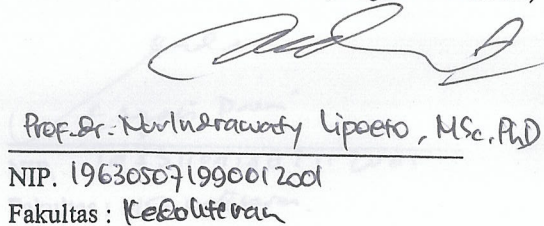 Prof. Dr. NurIndrawaty Lipoeto, MSc, PhD
NIP. 196305071990012001
Fakultas : Kedokteran